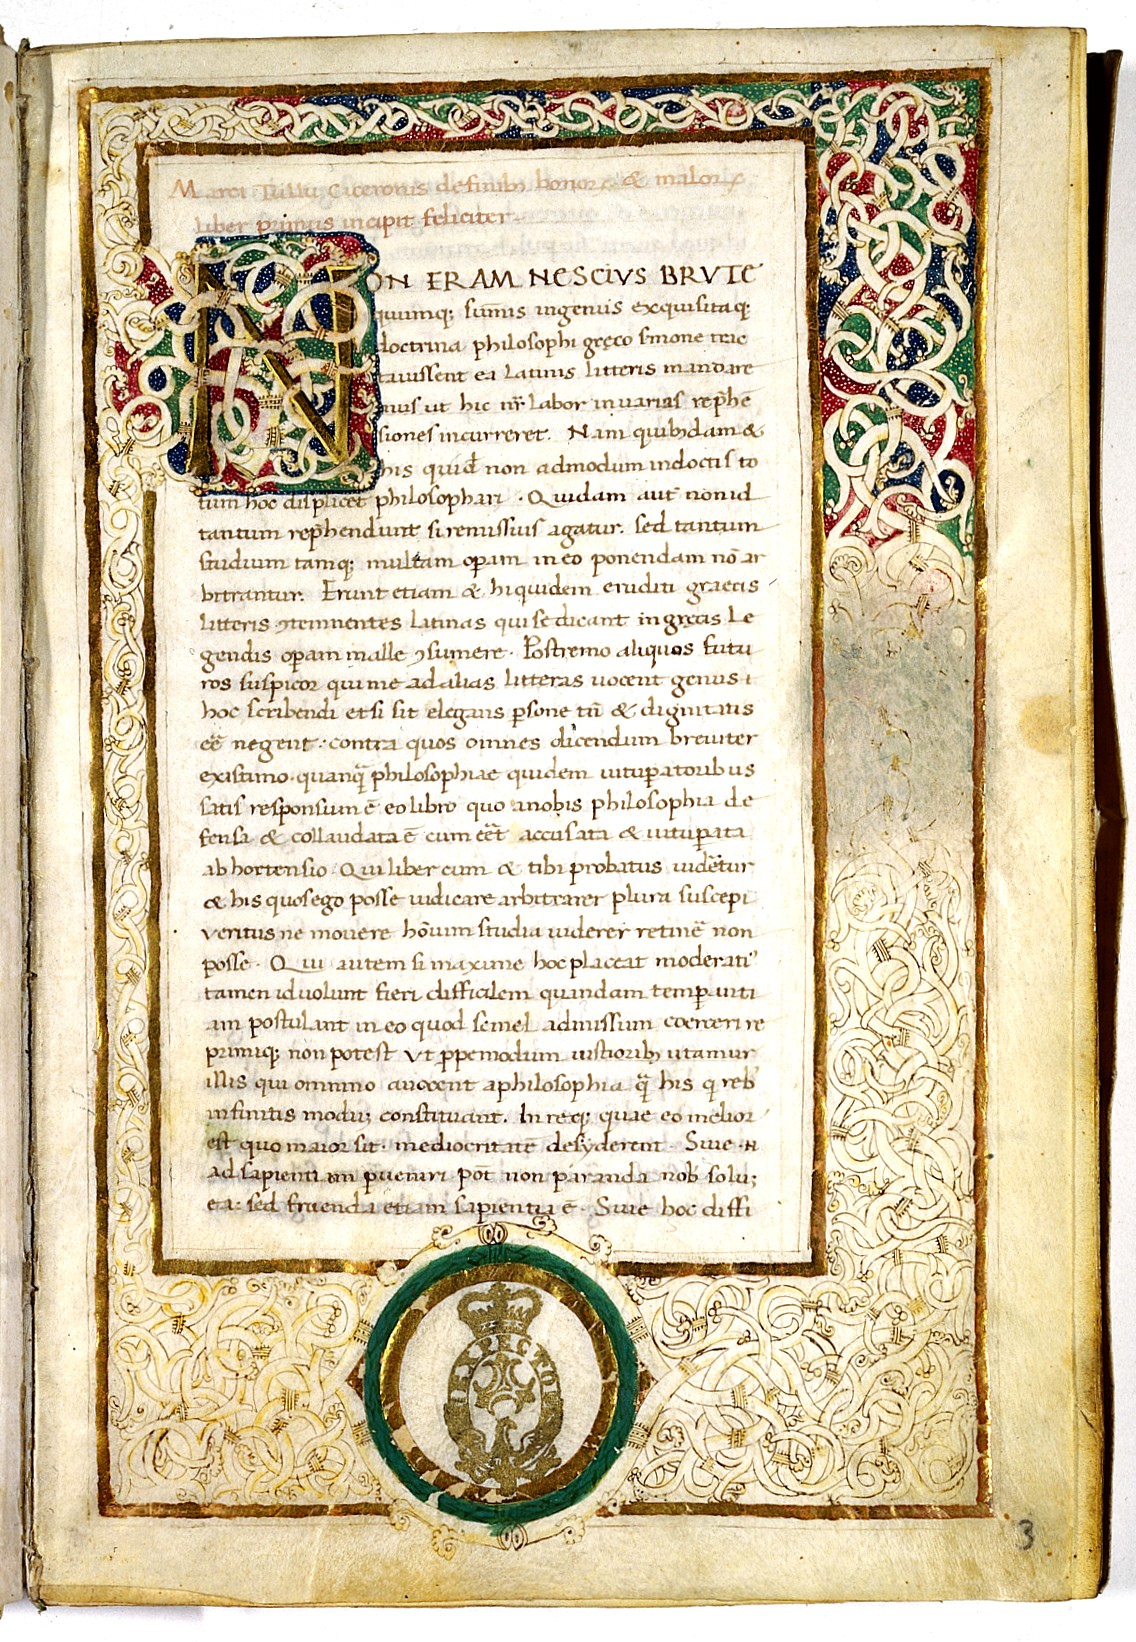 Marci Tullii Ciceronis de finibꝫ bonoꝝ & maloꝝ
liber primus incipit feliciter
NON ERAM NESCIVS BRVTE
quumq; sūmis ingeniis exquisitaq;
doctrina philosophi gręco sermone trac
tauissent ea Latinis litteris mandare
mus ut hic nr̄ labor in uarias rep̄hē
siones incurreret. Nam quibꝫdam &
his quid̄ non admodum indoctis to
tum hoc displicet philosophari. Quidam aut̄ non id
tantum rep̄hendunt si remissius agatur. sed tantum
studium tamq; multam oꝑam in eo ponendam nō ar
bitrantur. Erunt etiam & hi quidem eruditi graecis
litteris ꝯtemnentes Latinas qui se dicant in gręcis Le
gendis oꝑam malle ꝯsumere. Postremo aliquos futu
ros suspicor qui me ad alias litteras uocent genus ı
hoc scribendi etsi sit elegans ꝑsone tn̄ & dignitatis
eē negent. contra quos omnes dicendum breuiter
existimo. quanq̄ philosophiae quidem uituꝑatoribus
satis responsum ē eo libro quo a nobis philosophia de
fensa & collaudata ē cum eēt accusata & uituꝑata
ab hortensio. Qui liber cum & tibi probatus uidētur
& his quos ego posse iudicare arbitrarer plura suscepi
veritus ne mouere hōıum studia uiderer retinē non
posse. Qui autem si maxime hoc placeat moderati᾽
tamen id uolunt fieri difficilem quandam temꝑanti
am postulant in eo quod semel admissum coerceri re
primiq; non potest vt ꝓpemodum iustioribꝫ utamur
illis qui omnino auocent a philosophia q̄ his q reb᾽
infinitis modū constituant. In req; quae eo melior
est quo maior sit. mediocritatē desyderent. Siue .n
ad sapientiam ꝑueniri pōt non paranda nob᾽ solū
ea: sed fruenda etiam sapientia ē. Siue hoc diffi
IEXPECTO
3